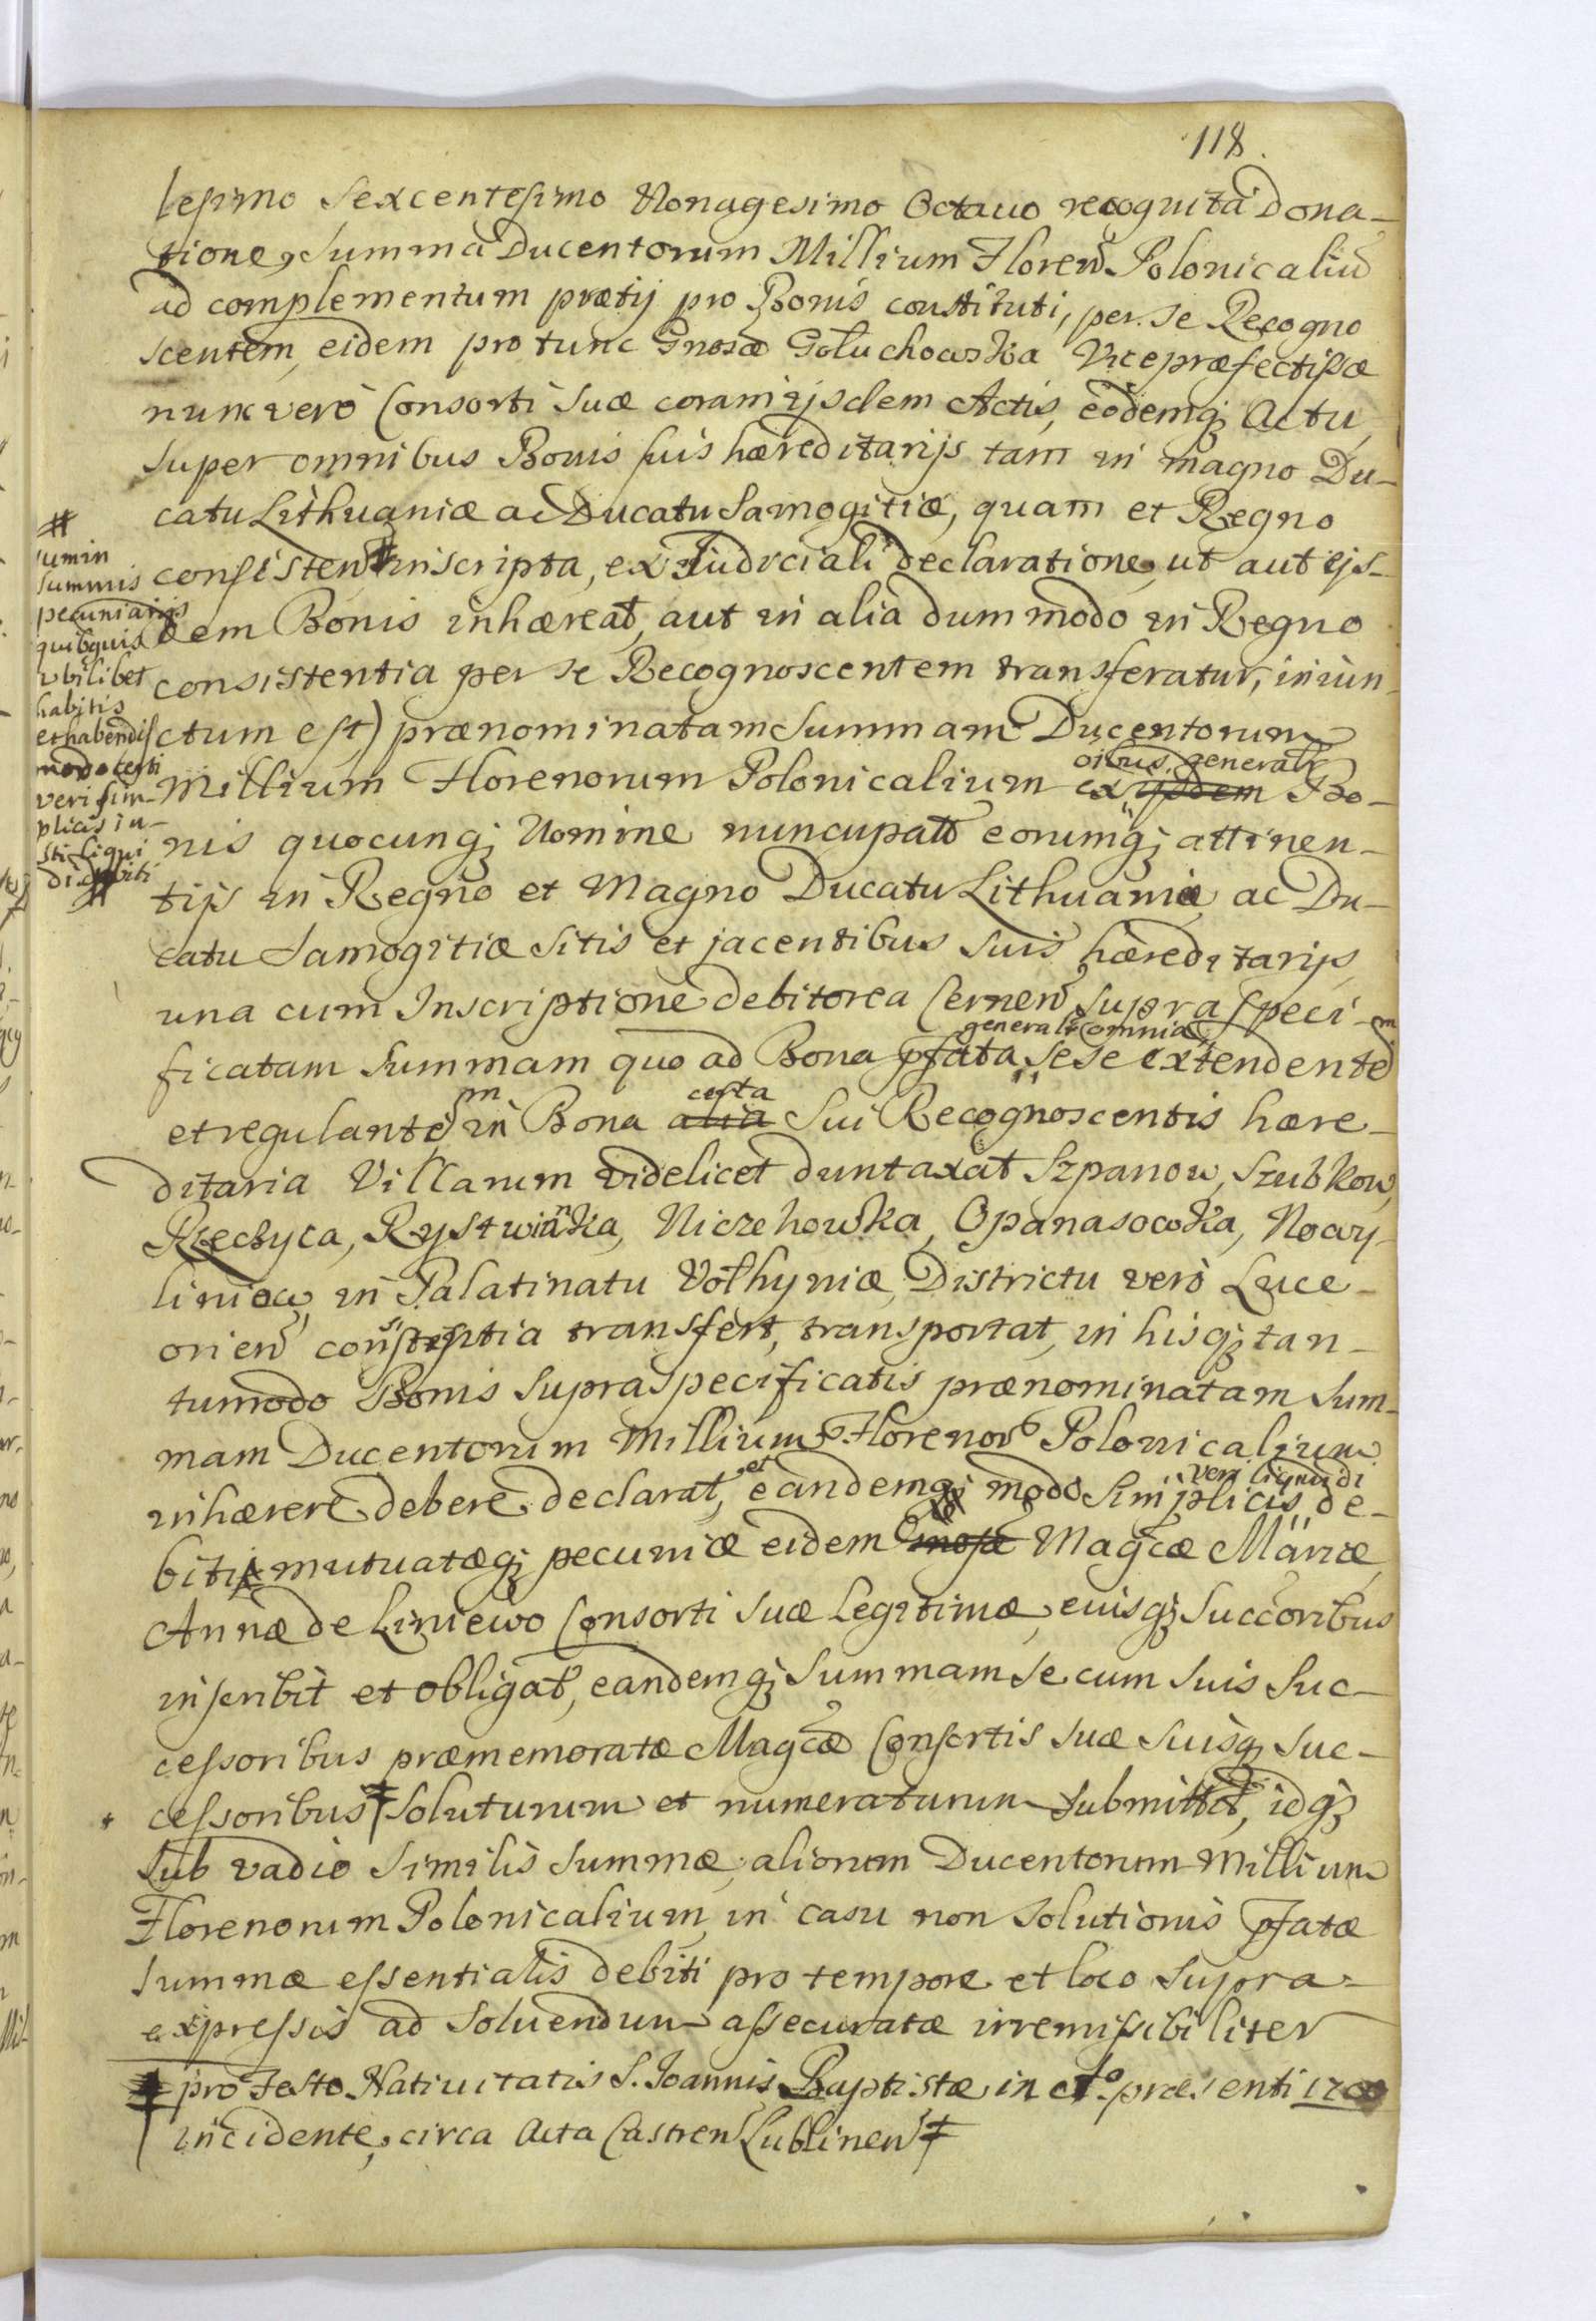 118.
lesimo Sexcentesimo Nonagesimo Octavo recognita Dona-
tione, Summa Ducentorum Millium Floren Polonicaliu
ad complementum prætij pro Bonis constituti, per se Recogno
scentem, eidem pro tunc Gnosæ Gołuchowska Vicepræfectissæ
nunc verò Consorti Suæ coram ijsdem Actis, eodemq; Actu,
super omnibus Bonis suis hæreditarijs tam in magno Du-
catu Lithuaniæ ac Ducatu Samogitiæ, quam et Regno
consisten # inscripta, ex Iudiciali declaratione, ut aut ejs-
dem Bonis inhæreat, aut in alia dummodo in Regno
consistentia per se Recognoscentem transferatur, iniun-
ctum est) prænominatam Summam Ducentorum
oibus generalr
Millium Florenorum Polonicalium ex ijsdem Bo-
nis quocunq; Nomine nuncupat eorumq; attinen-
tijs in Regno et Magno Ducatu Lithuaniæ ac Du-
catu Samogitiæ sitis et jacentibus suis hæreditarijs
una cum Inscriptione debitorea Cernen supra speci-
generalr omnia m
ficatam Summam quo ad Bona pfata sese extendente
m certa
et regulante in Bona alia Sui Recognoscentis hære-
ditaria Villarum videlicet duntaxat Szpanow, Szubkow,
Rzeczyca, Rystwinka, Niczehowka, Opanasowka, Nowy-
liniow, in Palatinatu Volhyniæ Districtu verò Luce-
orien consistentia transfert, transportat, in hisq; tan-
tumodo Bonis supraspecificatis prænominatam Sum-
mam Ducentorum Millium Florenor Polonicalium
et veri liquidi
inhærere debere declarat, eandemq; modo Simplicis de-
biti mutuatæq; pecuniæ eidem Gnosæ Magcæ Mariæ
Annæ de Liniewo Consorti suæ Legitimæ, eiusq; Succoribus
inscribit et obligat, eandemq; Summam se cum suis Suc-
cessoribus præmemoratæ Magcæ Consortis suæ suisq; suc-
cessoribus ‡ Soluturum et numeraturum submittet, idq;
Sub vadio similis Summæ, aliorum Ducentorum Millium
Florenorum Polonicalium in casu non solutionis pfatæ
Summæ essentialis debiti pro tempore et loco supra-
expressis ad solvendum assecuratæ irremissibiliter
‡ pro Festo Nativitatis S. Joannis Baptistæ in Ao præsenti 1700
incidente, circa Acta Castren Lublinen ‡
#
summis
pecuniarijs
quibquis
ubilibet
habitis
et habendis
modo certi
veri sim-
plicis iu-
sti liqui
di debiti
#